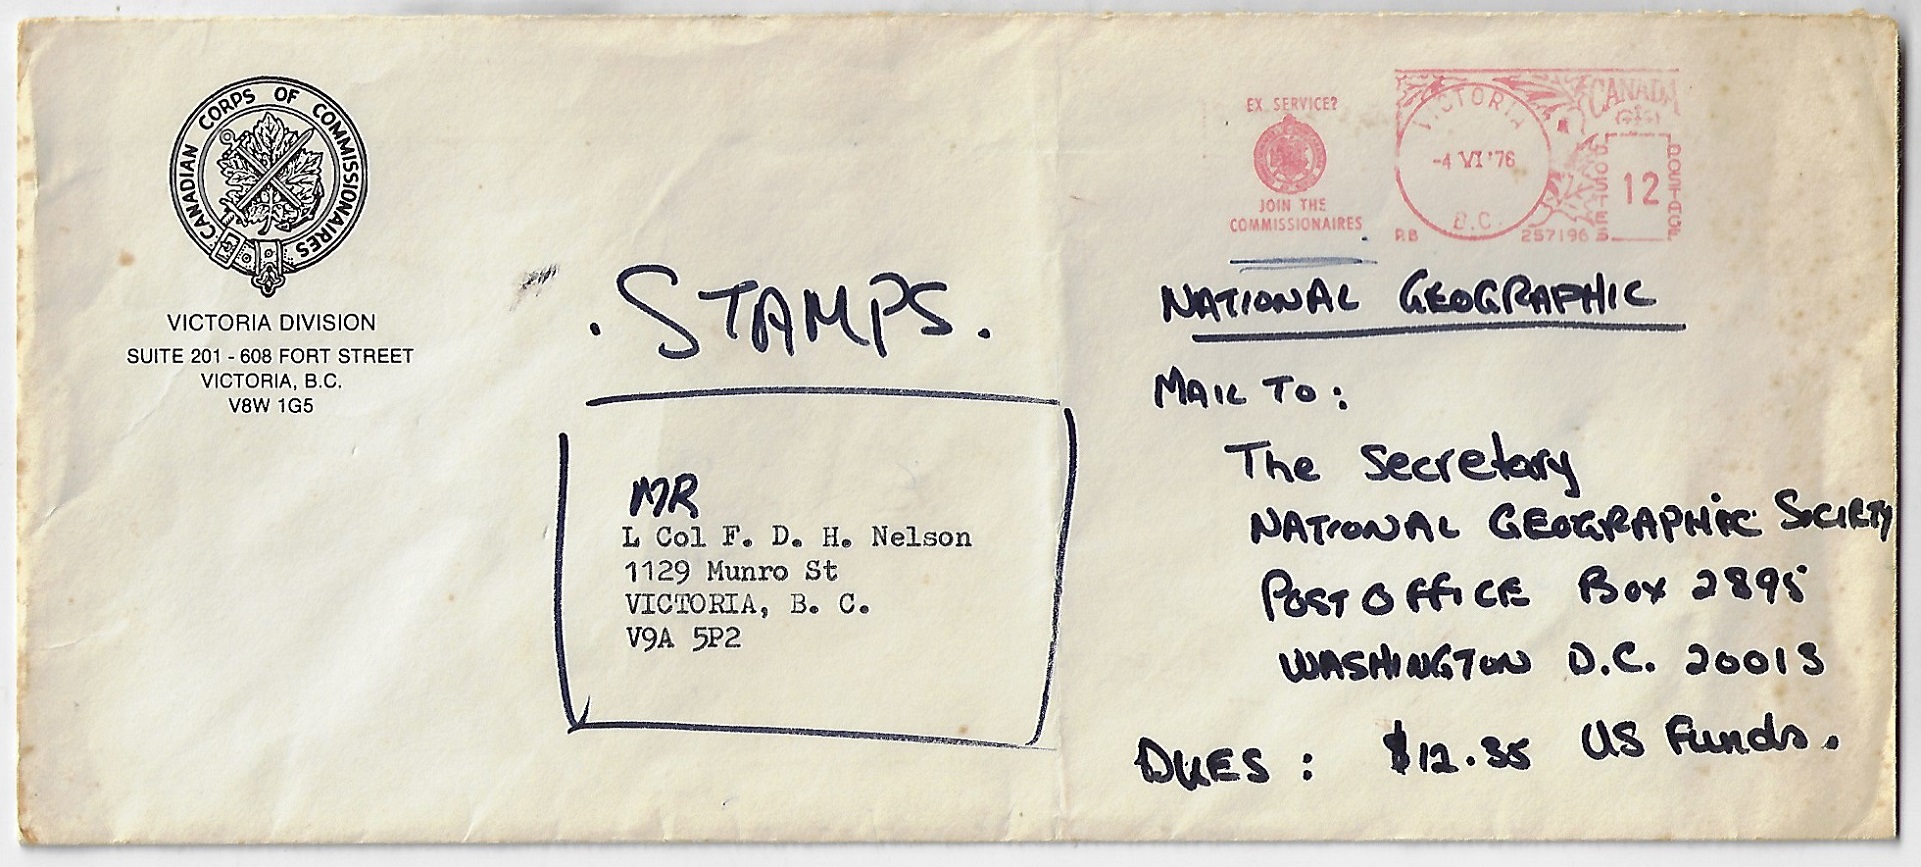 CANADIAN CORPS OF COMMISSIONAIRES
VICTORIA DIVISION
SUITE 201 - 608 FORT STREET
VICTORIA, B.C.
V8W 1G5
EX SERVICE?
JOIN THE
COMMISSIONAIRES
VICTORIA
-4 VI '76
B.C.
P.B
257196
CANADA
POSTES
12
POSTAGE
. STAMPS.
MR
L Col F. D. H. Nelson
1129 Munro St
VICTORIA, B. C.
V9A 5P2
NATIONAL GEOGRAPHIC
MAIL TO:
The Secretary
NATIONAL GEOGRAPHIC SOCIETY
POST OFFICE BOX 2895
WASHINGTON D.C. 20013
DUES : $12.35 US Funds.